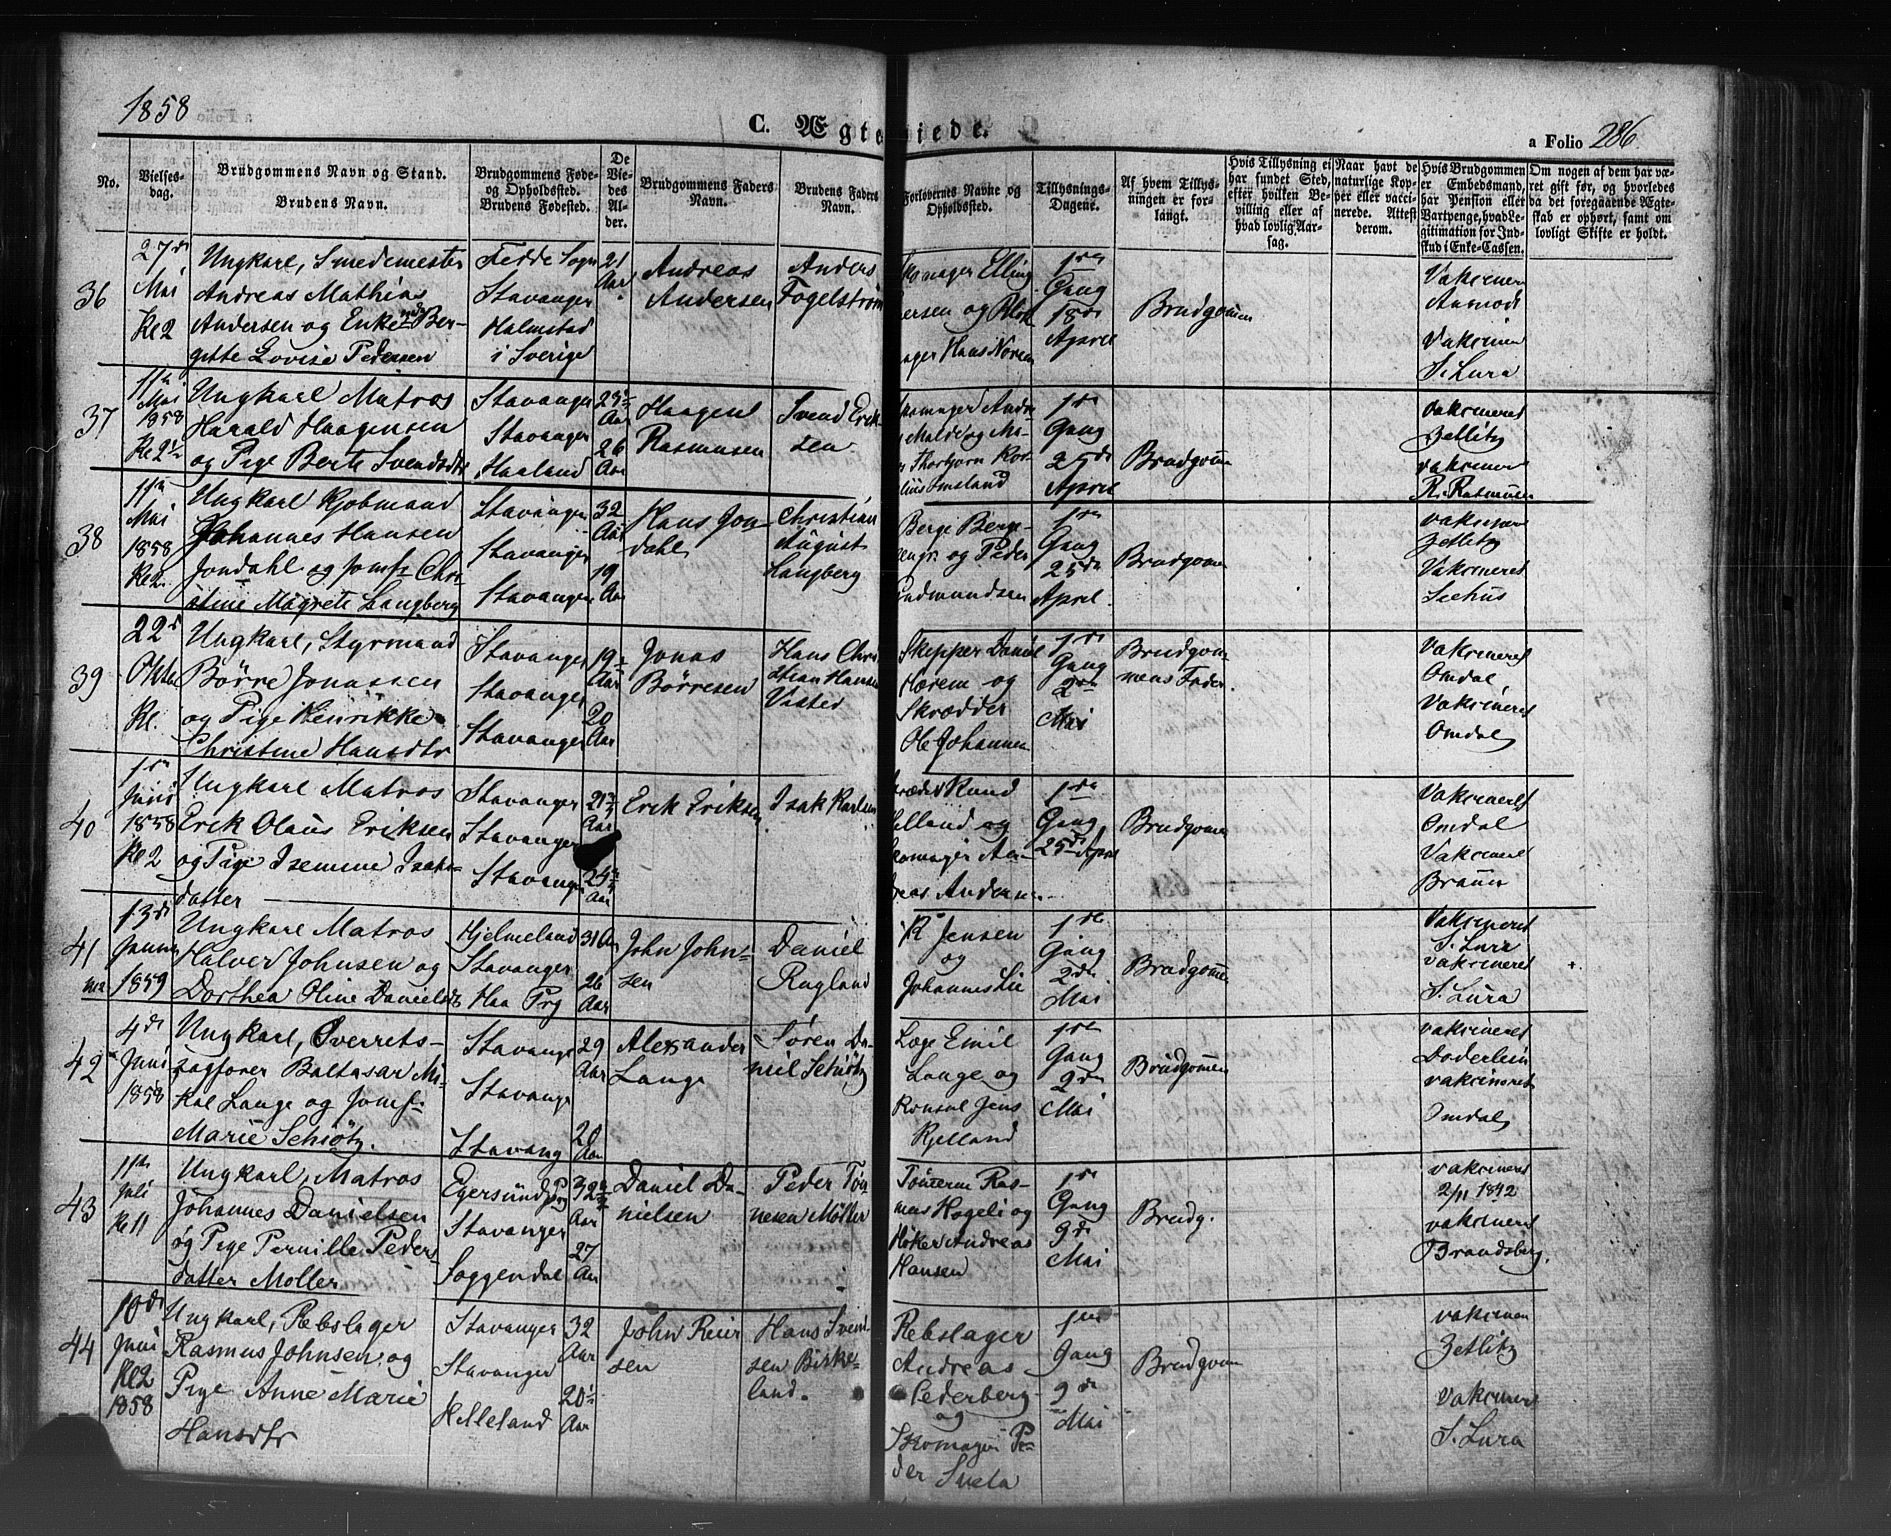 1858
C. Ægteviede.
a Folio 286.
No.
Vielses-
dag.
Brudgommens Navn og Stand.
Brudens Navn.
Brudgommens Føde-
og Opholdssted.
Brudens Fødested.
De
Vie-
des
Al-
der.
Brudgommens Faders
Navn.
Brudens Faders
Navn.
Forlovernes Navne og
Opholdssted.
Tillysnings-
Dagene.
Af hvem Tillys-
ningen er for-
langt.
Hvis Tillysning ei
har fundet Sted,
efter hvilken Be-
villing eller af
hvad lovlig Aar-
sag.
Naar havt de
naturlige Kop-
per eller vacci-
nerede. Attest
derom.
Hvis Brudgommen
er Embedsmand,
har Pension eller
Vartpenge, hvad Le-
gitimation for Ind-
skud i Enke-Cassen.
Om nogen af dem har væ-
ret gift før, og hvorledes
da det foregaaende Ægte-
skab er ophørt, samt om
lovligt Skifte er holdt.
36
27de
Mai
Kl 2
Ungkarl, Smedemester
Andreas Mathias
Andersen og Enke Ber-
gitte Lovise Pedersen
Fedde Sogn
Stavanger
Halmstad
i Sverige
21
Aar
Andreas
Andersen
Anders
Fogelstrøm
komager Elling
ersen og Blok
ager Hans Noren
1ste
Gang
18de
April
Brudgommen
Vakciner
Aasnod
Vakciner
S. Lura
37
11te
Mai
1858
Kl 2½
Ungkarl Matros
Harald Haagensen
og Pige Berte Svendsdtr
Stavanger
Stavanger
Haaland
23½
Aar
26
Aar
Haagen
Rasmusen
Svend Erik-
sen
komager Andr
Malde og Ma-
r Thorbjørn Kor
lius Imsland
1ste
Gang
25de
April
Brudgommen
vakcineret
Zetlitz
vakciner
R. Rasmusen
38
11te
Mai
1858
Kl 2
Ungkarl Kjøbmand
Johannes Hansen
Jondahl og Jomfr Chri-
stine Magrete Langberg
Stavanger
Stavanger
Stavanger
32
Aar
19
Aar
Hans Jon-
dahl
Christian
August
Langberg
Berge Berge-
sengr. og Peder
Gudmundsen
1ste
Gang
25de
April
Brudgommen
vakciner
Zetlitz
Vakcineret
Seehus
39
22de
Okto
Kl.
Ungkarl, Styrmand
Børre Jonassen
og Pige Henrikke
Christine Hansdtr
Stavanger
Stavanger
Stavanger
19½
Aar
20
Aar
Jonas
Børresen
Hans Chri
stian Hansen
Visted
Skipper Daniel
Hærem og
Skrædder
Ole Johannen
1ste
Gang
2den
Mai
Brudgom-
mens Fader.
Vakcineret
Omdal
Vakcineret
Omdal
40
1ste
Juni
1858
Kl 2
Ungkarl Matros
Erik Olaus Eriksen
og Pige Isemine Isaks-
datter
Stavanger
Stavanger
Stavanger
Aar
Aar
Erik Eriksen
Isak Karlsen
rædder Knud
elland og
komager An-
reas Andersen
1ste
Gang
25de April
Brudgommen
Vakcineret
Omdal
Vakcineret
Braun
41
13de
Januar
1859
Ungkarl Matros
Halver Johnsen og
Dorthea Oline Danielsdtr
Hjelmeland
Stavanger
Haa Prg
31 Aar
26
Aar
John John-
sen
Daniel
Rugland
K Jensen
og
Johannes Lie
1ste
Gang
2den
Mai
Brudgommen
Vakcineret
S. Lura
vakcineret
S. Lura
+
42
4de
Juni
1858
Ungkarl, Overrets-
sagfører Baltasar Mi-
kal Lange og Jomfr.
Marie Schiøtz.
Stavange
Stavange
Stavang
29
Aar
20
Aar
Alexander
Lange
Søren Da-
niel Schiøtz
Læge Emil
Lange og
Konsul Jens
Kjelland
1ste
Gang
2den
Mai
Brudgommen
vakcineret
Døderlein
vakcineret
Omdal
43
11te
Juli
Kl 11
Ungkarl, Matros
Johannes Danielsen
og Pige Pernille Peders
datter Møller
Egersund Prg
Stavanger
Soggendal
Aar
27
Aar
Daniel Da-
nielsen
Peder Tøn
nesen Møller
Tømrerne Ras-
mus Hogeli og
Høker Andreas
Hansen
1ste
Gang
9de
Mai
Brudg.
vakcineret
2/11 1842
vakcineret
Brandsberg.
44
10de
Juni
Kl 2
1858
Ungkarl, Rebslager
Rasmus Johnsen og
Pige Anne Marie
Hansdtr
Stavanger
Stavanger
Helleland
32
Aar
20½
Aar
John Reier
sen
Hans Svend-
sen Birke-
land.
Rebslager
Andreas
Cederberg
og
Skomager Pe-
der Svela
1ste
Gang
9de
Mai
Brudgom
vakciner
Zetlitz
vakciner
S. Lura